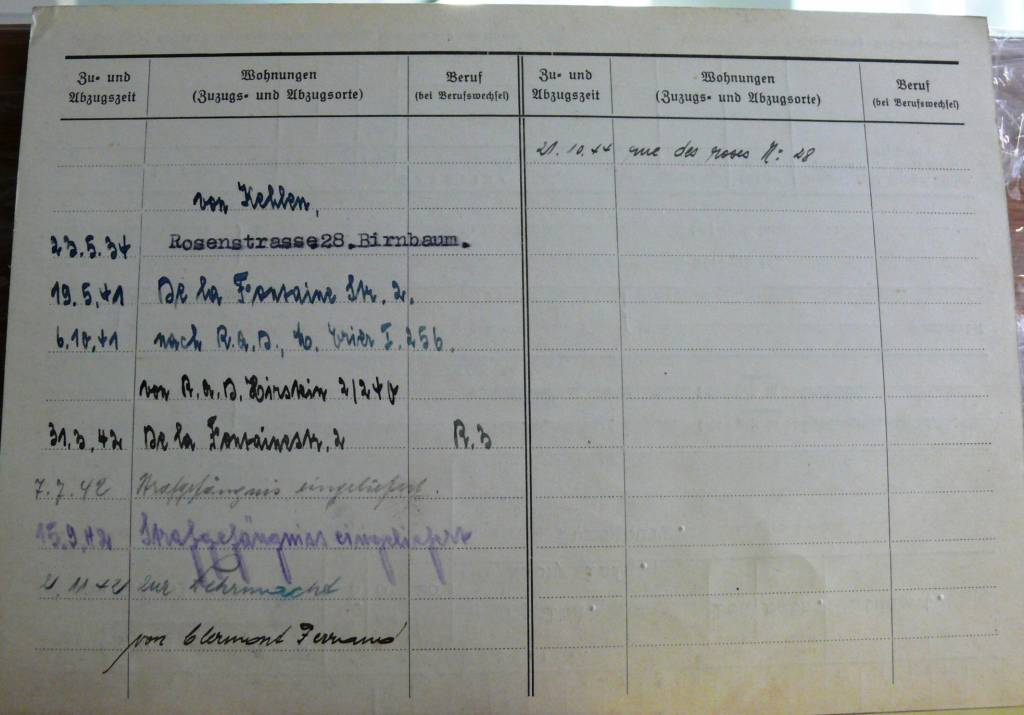 Zu- und Abzugszeit
Wohnungen
(Zuzugs- und Abzugsorte)
Beruf
(bei Berufswechsel)
Zu- und Abzugszeit
Wohnungen
(Zuzugs- und Abzugsorte)
Beruf
(bei Berufswechsel)
von Kehlen,
23.5.34 Rosenstrasse 28. Birnbaum.
19.5.41 De la Fontaine Str. 2.
6.10.41 nach R.a.D., Trier I. 256.
von R.a.D. 2/240
31.3.42 De la Fontainestr. 2 R.3
7.7.42 Strafgefängnis eingeliefert.
15.9.42 Strafgefängniss eingeliefert
11 42 zur Wehrmacht
von Clermont Ferrand
21.10.44 rue des roses N: 28